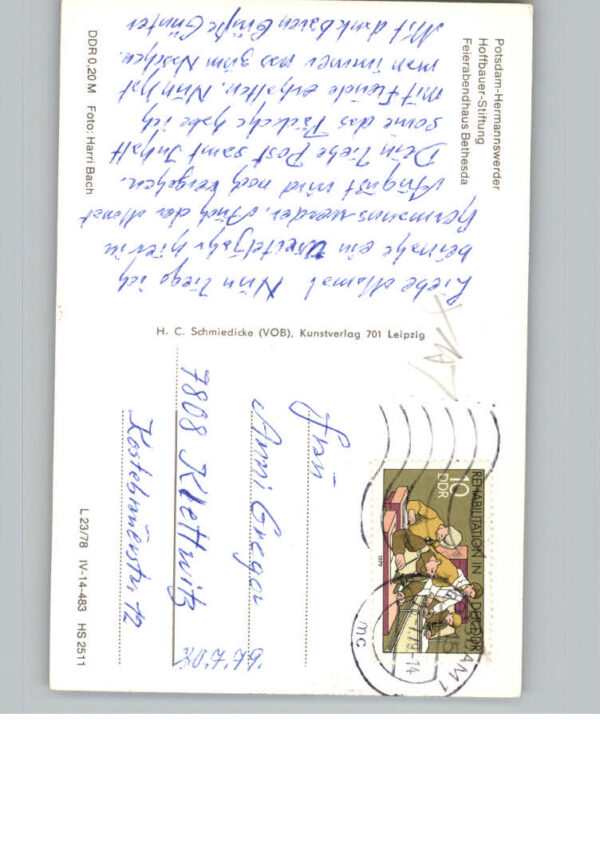 Potsdam-Hermannswerder
Hoffbauer-Stiftung
Feierabendhaus Bethesda
Liebe Mama! Nun liege ich
beinahe ein Vierteljahr hier in
Hermannswerder. Auch der Monat
August wird noch vergehen.
Dein liebe Post samt Inhalt
sowie das Päckche habe ich
mit Freude erhalten. Nun hat
man immer was zum Naschen.
Mit dankbaren Grüße Günter
DDR 0,20 M Foto: Harri Bach
H. C. Schmiedicke (VOB), Kunstverlag 701 Leipzig
REHABILITATION IN DER DDR
10
DDR
1979
Frau
Anni Gregor
7808 Klettwitz
Kostebrauerstr. 12
L 23/78 IV-14-483 HS 2511